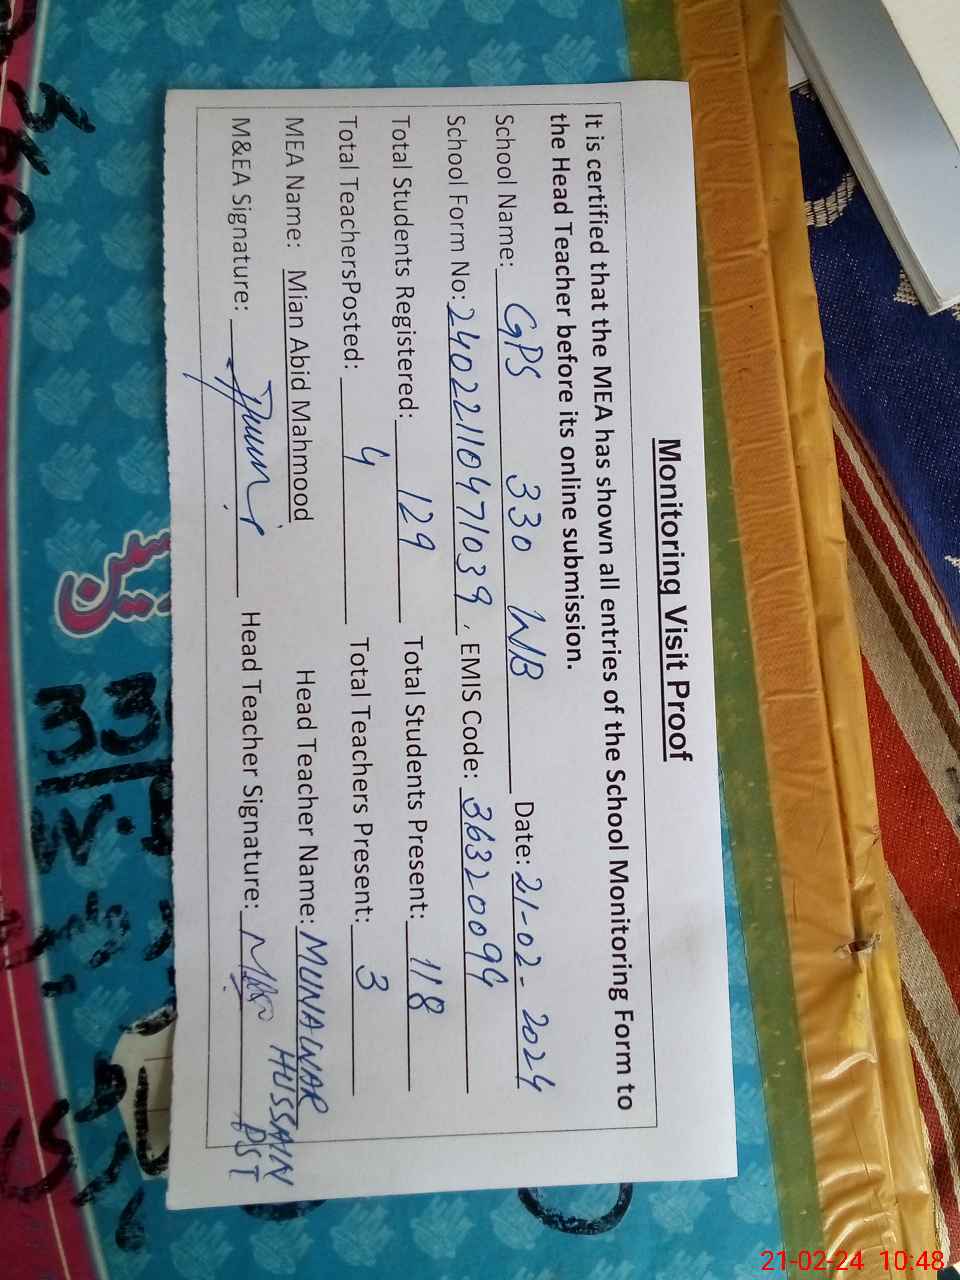 Monitoring Visit Proof
It is certified that the MEA has shown all entries of the School Monitoring Form to
the Head Teacher before its online submission.
School Name: GPS 330 WB Date: 21-02-2024
School Form No: 24022110471039, EMIS Code: 36320099
Total Students Registered: 129 Total Students Present: 118
Total TeachersPosted: 4 Total Teachers Present: 3
MEA Name: Mian Abid Mahmood Head Teacher Name: MUNAWAR HUSSAIN
M&EA Signature: Head Teacher Signature: PST
21-02-24 10:48